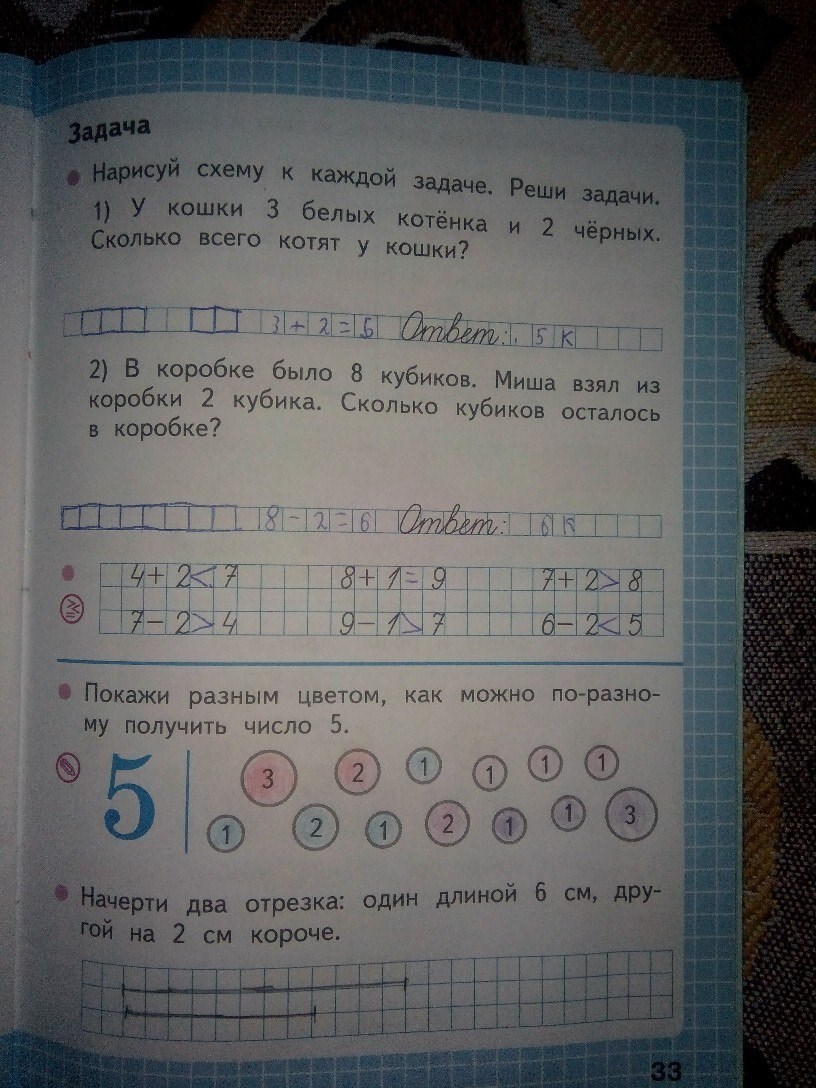 Задача
Нарисуй схему к каждой задаче. Реши задачи.
1) У кошки 3 белых котёнка и 2 чёрных.
Сколько всего котят у кошки?
3 + 2 = 5 Ответ: 5 К
2) В коробке было 8 кубиков. Миша взял из
коробки 2 кубика. Сколько кубиков осталось
в коробке?
8 - 2 = 6 Ответ: 6 К
4 + 2 < 7 8 + 1 = 9 7 + 2 > 8
7 - 2 > 4 9 - 1 > 7 6 - 2 < 5
Покажи разным цветом, как можно по-разно-
му получить число 5.
5 3 2 1 1 1 1
1 2 1 2 1 1 3
Начерти два отрезка: один длиной 6 см, дру-
гой на 2 см короче.
33